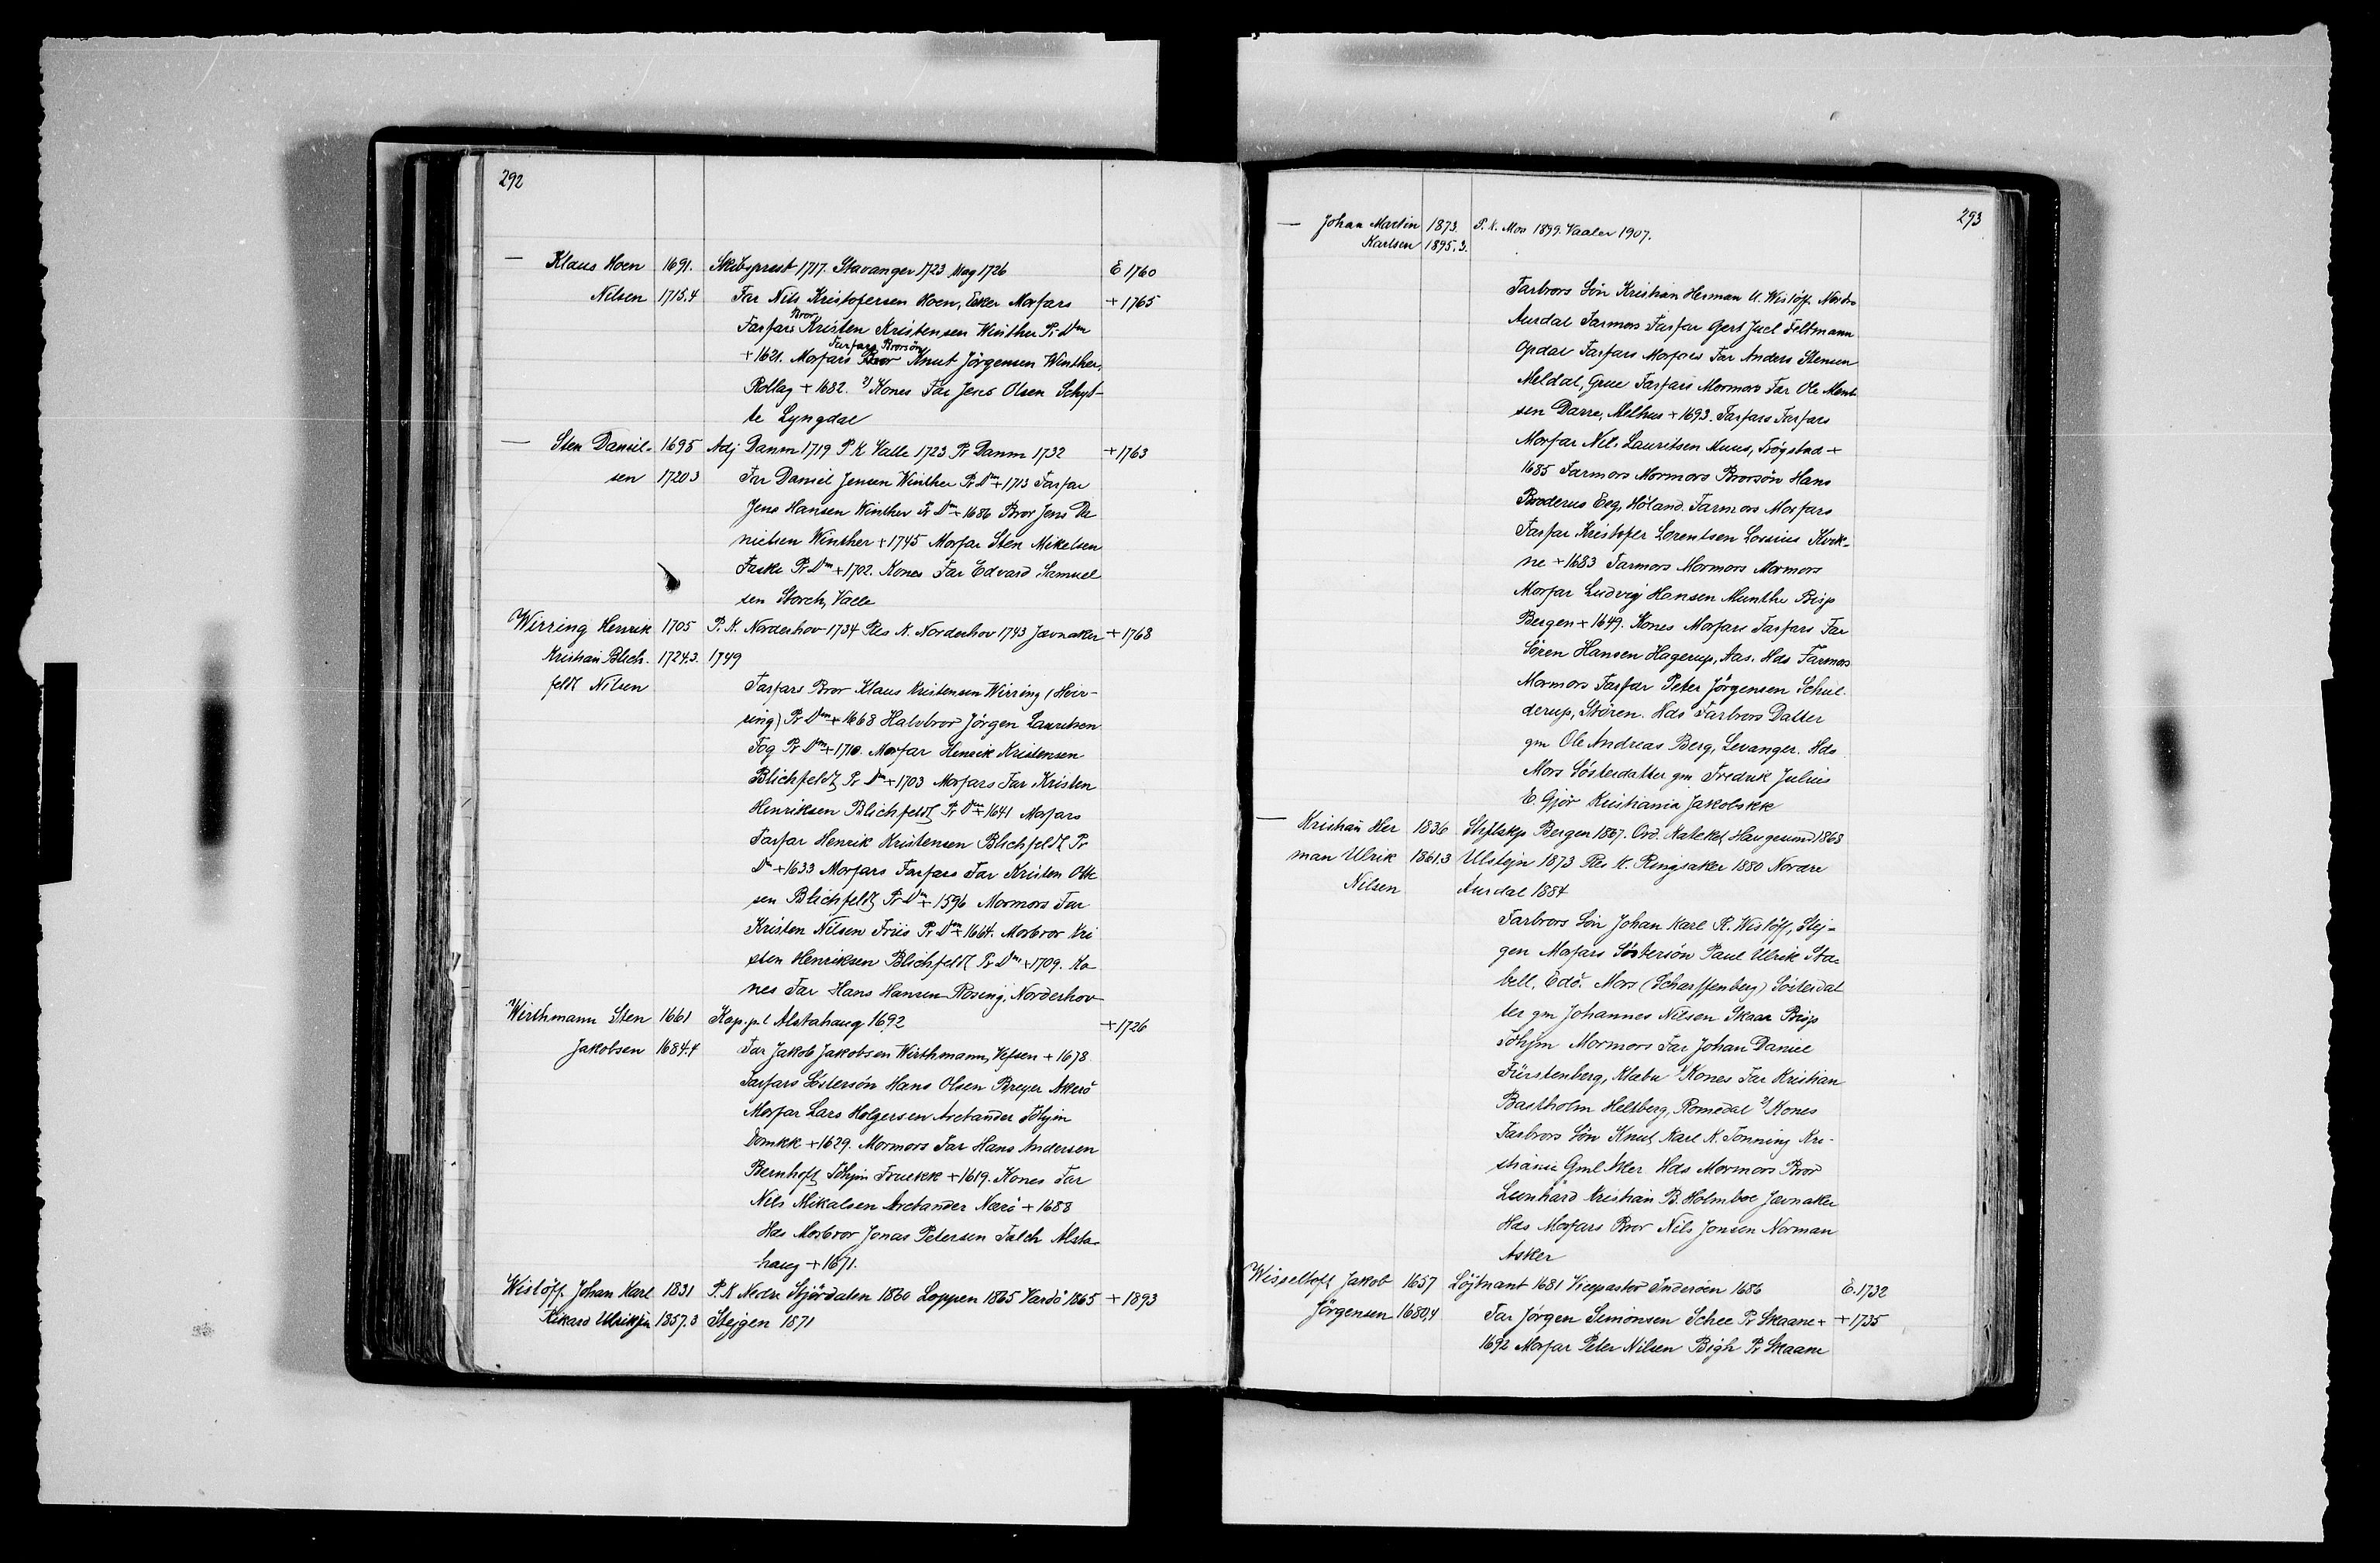 292
— Klaus Hoen 1691. Skibsprest 1717. Stavanger 1723 Mag 1726 E 1760
Nilsen 1715.4 Far Nils Kristofersen Hoen, Eker Morfars + 1765
Farfars Bror Kristen Kristensen Winther Pr Dm
+ 1621. Morfars Farfars Brorsön Knut Jörgensen Winther,
Rollag + 1682. 2) Kones Far Jens Olsen Schyt-
te Lyngdal
— Sten Daniel- 1695 Adj Danm 1719 P K Valle 1723 Pr Danm 1732 + 1763
sen 1720 3 Far Daniel Jensen Winther Pr Dm + 1713 Farfar
Jens Hansen Winther Pr Dm + 1686 Bror Jens Da
nielsen Winther + 1745 Morfar Sten Mikelsen
Faske Pr Dm + 1702. Kones Far Edvard Samuel
sen Storch, Valle
Wirring Henrik 1705 P. K. Norderhov 1734 Res K. Norderhov 1743 Jævnaker + 1768
Kristian Blich- 1724.3. 1749
feldt Nilsen Farfars Bror Klaus Kristensen Wirring (Hvir-
ring) Pr Dm + 1668 Halvbror Jörgen Lauritsen
Fog Pr Dm + 1710. Morfar Henrik Kristensen
Blichfeldt Pr Dm + 1703 Morfars Far Kristen
Henriksen Blichfeldt Pr Dm + 1641 Morfars
Farfar Henrik Kristensen Blichfeldt Pr
Dm + 1633 Morfars Farfars Far Kristen Olu
sen Blichfeldt Pr Dm + 1596 Mormors Far
Kristen Nilsen Friis Pr Dm + 1664. Morbror Kri
sten Henriksen Blichfeldt Pr Dm + 1709. Ko
nes Far Hans Hansen Rosing, Norderhov
Wirthmann Sten 1661 Kap. pl Alstahaug 1692 + 1726
Jakobsen 1684.4 Far Jakob Jakobsen Wirthmann, Vefsen + 1678
Farfars Söstersön Hans Olsen Breyer Akerö
Morfar Lars Holgersen Arctander Tdhjm
Domkk + 1629. Mormors Far Hans Andersen
Bernhoft Tdhjm Fruekk + 1619. Kones Far
Nils Mikalsen Arctander Nærö + 1688
Hds Morbror Jonas Petersen Falch Alsta-
haug + 1671.
Wislöff Johan Karl 1831 P. K Nedre Stjördalen 1860 Loppen 1865 Vardö 1865 + 1893
Rikard Ulrikjin 1857.3 Stejgen 1871
293
— Johan Martin 1873. P. K. Mos 1899. Vaaler 1907.
Karlsen 1895.3.
Farbrors Sön Kristian Herman U. Wislöff Nordre
Aurdal Farmors Farfar Gert Juel Feltmann
Opdal Farfars Morfars Far Anders Stensen
Meldal, Grue Farfars Mormors Far Ole Ment-
sen Darre, Melhus + 1693. Farfars Farfars
Morfar Nils Lauritsen Muus, Trögstad +
1685 Farmors Mormors Brorsön Hans
Broderus Eeg, Höland. Farmors Morfars
Farfar Kristofer Lorentsen Lossius Kvik-
ne + 1683 Farmors Mormors Mormors
Morfar Ludvig Hansen Munthe Bisp
Bergen + 1649. Kones Morfars Farfars Far
Sören Hansen Hagerup, Aas. Hds Farmors
Mormors Farfar Peter Jörgensen Schul-
derup, Stören. Hds Farbrors Datter
gm Ole Andreas Berg, Levanger. Hds
Mors Sösterdatter gm Fredrik Julius
E. Gjör Kristiania Jakobskk
— Kristian Her 1836 Stiftskp Bergen 1867. Ord. Katekel Haugesund 1868
man Ulrik 1861.3 Ulstejn 1873 Res K. Ringsaker 1880 Nordre
Nilsen Aurdal 1884
Farbrors Sön Johan Karl R. Wislöff, Stej-
gen Morfars Söstersön Paul Ulrik Sta-
bell, Edö. Mors (Scharffenberg) Sösterdat
ter gm Johannes Nilsen Skaar Bisp
Tdhjm Mormors Far Johan Daniel
Fürstenberg, Klæbu 1) Kones Far Kristian
Bastholm Heltberg, Romedal 2) Kones
Farbrors Sön Knut Karl K. Tonning Kri-
stiania Gml Aker Hds Mormors Bror
Leonhard Kristian B. Holmboe Jævnaker
Hds Morfars Bror Nils Jonsen Norman
Asker
Wisseltoft Jakob 1657 Löjtnant 1681 Vicepastor Inderöen 1686 E. 1732
Jörgensen 1680,4 Far Jörgen Simonsen Schee Pr Skaane + + 1735
1692 Morfar Peter Nilsen Bigh Pr Skaane